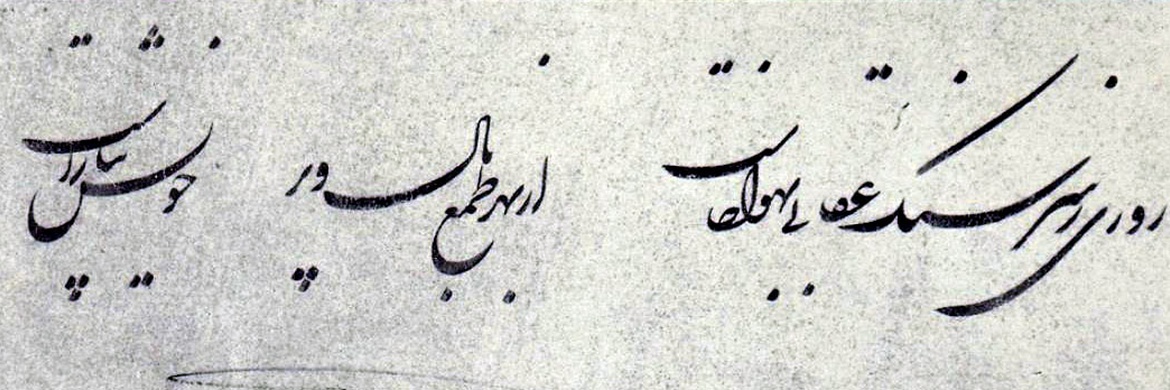 روزی ز سر سنگ عقابی بهوا خاست از بهر طمع بال و پر خویش بیاراست